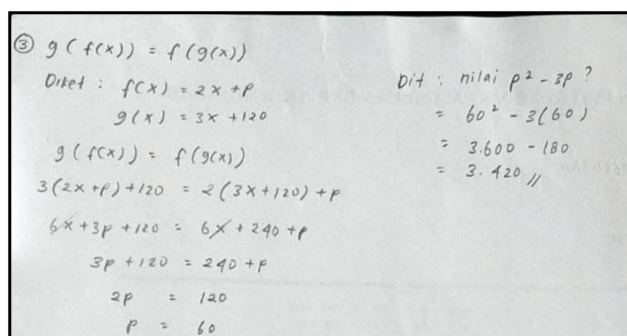 ③ g(f(x)) = f(g(x))
Diket : f(x) = 2x + p
g(x) = 3x + 120
g(f(x)) = f(g(x))
3(2x+p)+120 = 2(3x+120)+p
6x+3p+120 = 6x+240+p
3p+120 = 240+p
2p = 120
p = 60
Dit : nilai p² - 3p ?
= 60² - 3(60)
= 3.600 - 180
= 3.420 //